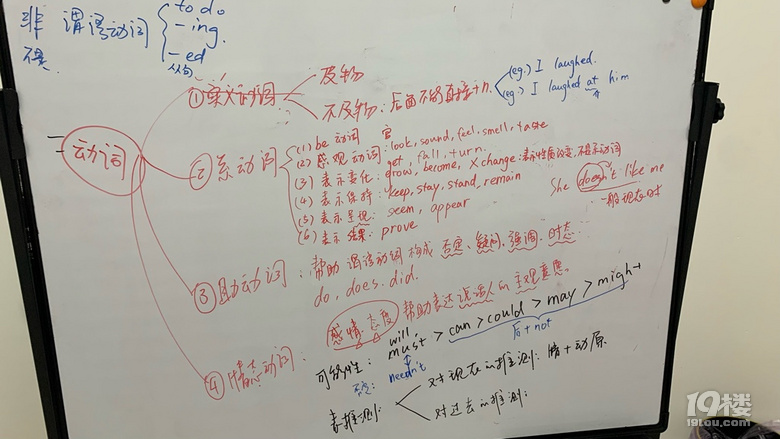 非谓语动词
to do
-ing.
-ed
从句
二
动词
① 实义动词
及物
不及物: 后面不能直接+n.
(eg.) I laughed.
(eg.) I laughed at him
② 系动词
(1) be 动词
(2) 感观动词: look, sound, feel, smell, taste
(3) 表示变化: get, fall, turn.
grow, become, X change: 表示性质改变, 不是系动词
(4) 表示保持: keep, stay, stand, remain
(5) 表示呈现: seem, appear
(6) 表示结果: prove
She doesn't like me
一般现在时
③ 助动词: 帮助谓语动词构成否定、疑问、强调、时态.
do, does. did.
④ 情态动词:
感情 态度
帮助表达说话人的主观意愿。
可能性: will, must > can > could > may > might
needn't
后+not
表推测:
对现在的推测: 情+动原
对过去的推测:
19楼
19lou.com